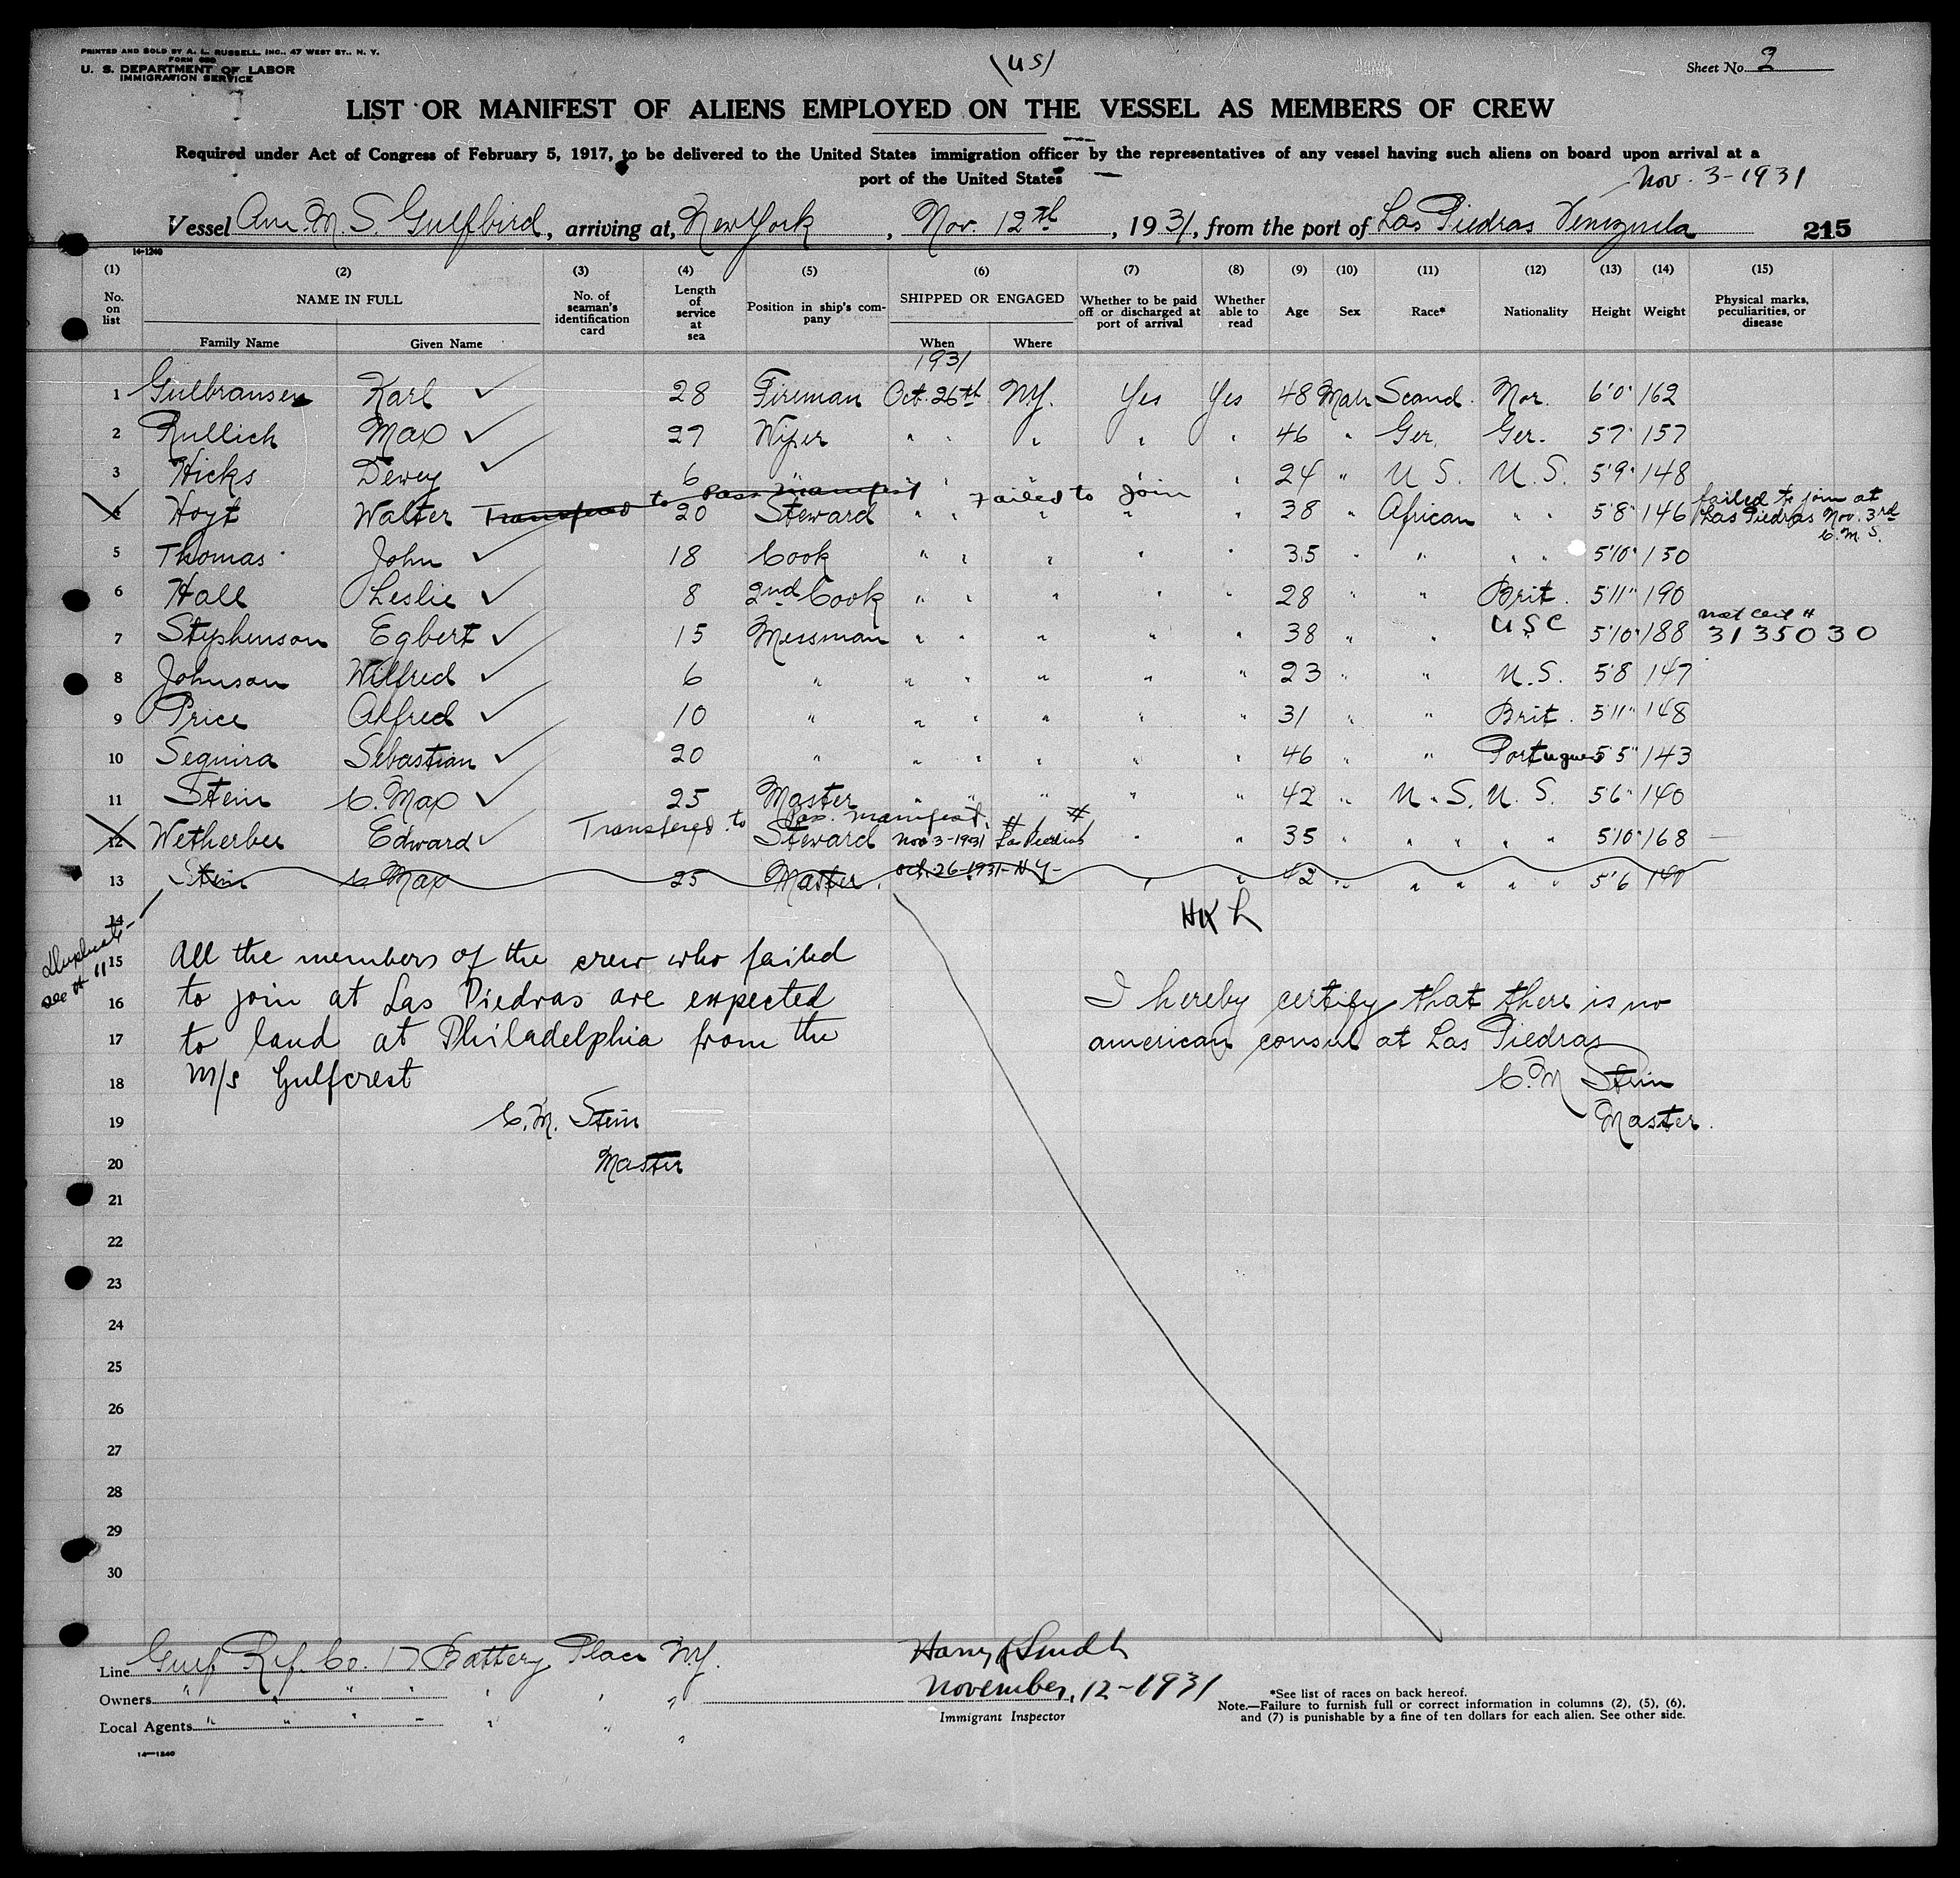 PRINTED AND SOLD BY A. L. RUSSELL, INC., 47 WEST ST., N. Y.
FORM 680
U. S. DEPARTMENT OF LABOR
IMMIGRATION SERVICE
(US)
Sheet No. 2
LIST OR MANIFEST OF ALIENS EMPLOYED ON THE VESSEL AS MEMBERS OF CREW
Required under Act of Congress of February 5, 1917, to be delivered to the United States immigration officer by the representatives of any vessel having such aliens on board upon arrival at a
port of the United States
Nov. 3-1931
Vessel Am. M. S. Gulfbird, arriving at, New York, Nov. 12th, 1931, from the port of Las Piedras Venezuela 215
14-1240
(1) (2) (3) (4) (5) (6) (7) (8) (9) (10) (11) (12) (13) (14) (15)
No. on list NAME IN FULL No. of seaman's identification card Length of service at sea Position in ship's company SHIPPED OR ENGAGED Whether to be paid off or discharged at port of arrival Whether able to read Age Sex Race* Nationality Height Weight Physical marks, peculiarities, or disease
Family Name Given Name When Where
1931
1 Gulbransen Karl ✓ 28 Fireman Oct. 26th N.Y. Yes Yes 48 Male Scand. Nor. 6'0" 162
2 Rullich Max ✓ 27 Wiper " " " " " 46 " Ger. Ger. 5'7" 157
3 Hicks Dewey ✓ 6 " " " " " 24 " U.S. U.S. 5'9" 148
Transfered to Pass Manifest Failed to join
4 Hoyt Walter 20 Steward " " " " 38 " African " " 5'8" 146 failed to join at
Las Piedras Nov. 3rd
C. M. S.
5 Thomas John ✓ 18 Cook " " " " " 35 " " " " 5'10" 150
6 Hall Leslie ✓ 8 2nd Cook " " " " " 28 " " Brit. 5'11" 190
7 Stephenson Egbert ✓ 15 Messman " " " " " 38 " " U S C 5'10" 188 nat cert #
3135030
8 Johnson Wilfred ✓ 6 " " " " " " 23 " " U.S. 5'8 147
9 Price Alfred ✓ 10 " " " " " " 31 " " Brit. 5'11" 148
10 Sequira Sebastian ✓ 20 " " " " " " 46 " " Portugues 5'5" 143
11 Stein C. Max ✓ 25 Master " " " " " 42 " U.S. U.S. 5'6" 140
Transfered to Pas. Manifest. # #
12 Wetherbee Edward ✓ Steward Nov 3-1931 Las Piedras " " 35 " " " " 5'10" 168
13 Stein C Max 25 Master Oct. 26-1931-N.Y- " " 42 " " " " " 5'6 140
14
Duplicate
see # 11
15 All the members of the crew who failed
16 to join at Las Piedras are expected
17 to land at Philadelphia from the
18 M/s Gulfcrest
19 C. M. Stein
20 Master
I hereby certify that there is no
american consul at Las Piedras
C. M Stein
Master.
21
22
23
24
25
26
27
28
29
30
Line Gulf Ref. Co. 17 Battery Place N.Y.
Owners " " " " " " "
Local Agents " " " " " " "
November, 12-1931
Immigrant Inspector
*See list of races on back hereof.
Note.—Failure to furnish full or correct information in columns (2), (5), (6),
and (7) is punishable by a fine of ten dollars for each alien. See other side.
14—1240